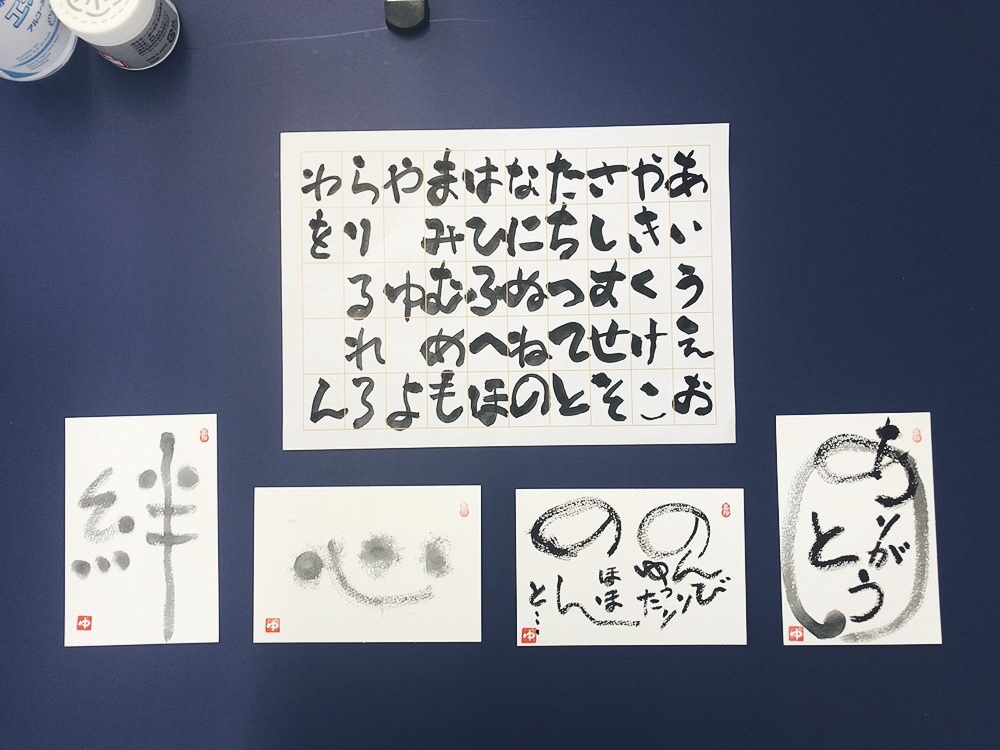 あいうえお
かきくけこ
さしすせそ
たちつてと
なにぬねの
はひふへほ
まみむめも
やゆよ
らりるれろ
わをん
絆
ゆ
心
ゆ
のんびり
ゆったり
のほほん
と…
ゆ
ありがとう
ゆ